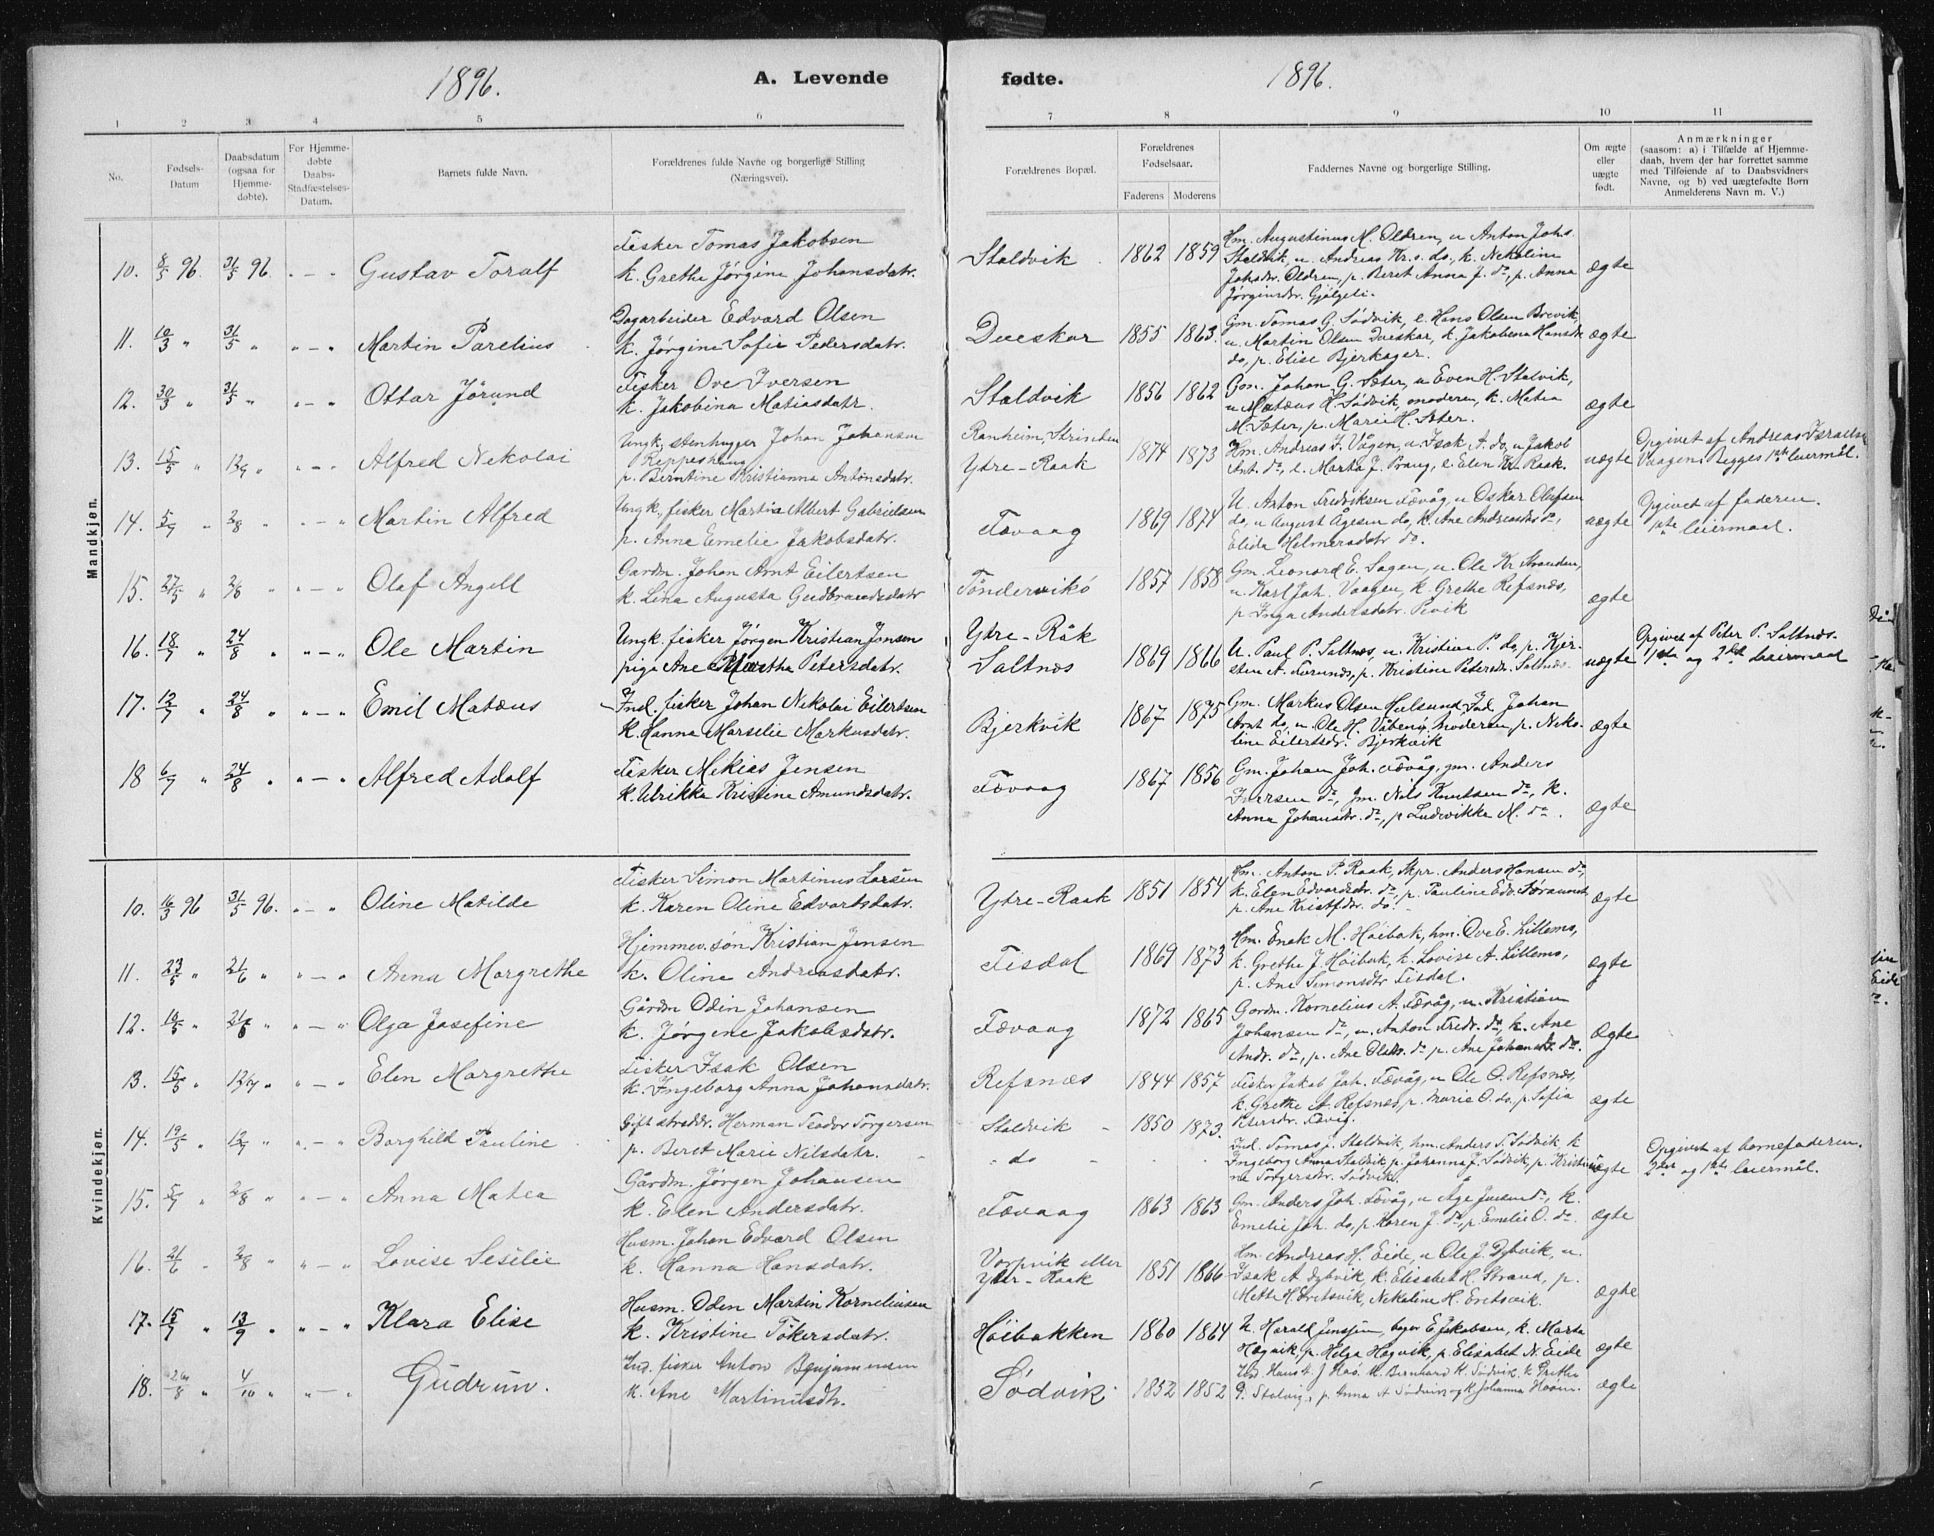 1896.
A. Levende
fødte.
1896.
1 2 3 4 5 6 7 8 9 10 11
No.
Fødsels-Datum
Daabsdatum (ogsaa for Hjemme-døbte).
For Hjemme-døbte Daabs-Stadfæstelses-Datum.
Barnets fulde Navn.
Forældrenes fulde Navne og borgerlige Stilling (Næringsvei).
Forældrenes Bopæl.
Forældrenes Fødselsaar.
Faderens Moderens
Faddernes Navne og borgerlige Stilling.
Om ægte eller uægte født.
Anmærkninger
(saasom: a) i Tilfælde af Hjemme-
daab, hvem der har forrettet samme
med Tilføiende af to Daabsvidners
Navne, og b) ved uægtefødte Børn
Anmelderens Navn m. V.)
Mandkjøn.
10. 8/5 96. 31/5 96. " — " Gustav Toralf
Fisker Tomas Jakobsen
k. Grethe Jørgine Johansdatr.
Staldvik 1862 1859
Hm. Augustinus M. Oldren, u Anton Johs.
Staldvik, u. Andreas Kr. s. do, k. Nekoline
Johsdr. Oldren, p. Beret Anna J. do, p. Anna
Jørginsdr. Gjølgeli.
ægte
11. 10/3 " 31/5 " " — " Martin Parelius
Dagarbeider Edvard Olsen
k. Jørgine Sofie Pedersdatr.
Dueskar 1855 1863.
Gm. Tomas G. Sødvik, e. Hans Olsen Brevik,
u. Martin Olsen Dueskar, k. Jakobine Hansdr.
do, p. Elise Bjerkager.
ægte
12. 30/3 " 31/5 " " — " Ottar Jørund
Fisker Ove Iversen
k. Jakobina Matiasdatr.
Staldvik 1856 1862
Gm. Johan G. Sæter, u Even H. Stalvik,
u Matæus H. Sødvik, moderen, k. Matea
M. Sæter, p. Marie H. Sæter.
ægte
13. 15/5 " 12/9 " " — " Alfred Nekolai
Ungk. stenhugger Johan Johansen
Reppeshaug
p. Berntine Kristianna Antonsdatr.
Ranheim, Strinden
Ytre-Raak 1874 1873
Hm. Andreas I. Vågen, u. Isak A. do, u Jakob
Ant. do, e. Marta J. Prang, e. Elen Kr. Raak.
uægte
Opgivet af Andreas Israels.
Vaagen. Begges 1ste leiermål.
14. 5/7 " 2/8 " " — " Martin Alfred
Ungk. fisker Martin Albert Gabrielsen
p. Anne Emelie Jakobsdatr.
Fævaag 1869 1874
U. Anton Fredriksen Fævåg, u Oskar Olufsen
do, u August Ågesen do, k. Ane Andreasdr do,
Elida Helmersdatr do.
uægte
Opgivet af faderen.
1ste leiermaal.
15. 27/5 " 2/8 " " — " Olaf Angell
Gardm. Johan Arnt Eilertsen
k. Lina Augusta Gudbrandsdatr
Tøndervikö 1857 1858
Gm. Leonard E. Sagen, u. Ole Kr. Stranden,
u. Karl Joh. Vaagen, k. Grethe Refsnæs,
p. Inga Andersdatr. Pevik
ægte
16. 18/7 " 24/8 " " — " Ole Martin
Ungk. fisker Jørgen Kristian Jensen
pige Ane Martha Petersdatr.
Ytre-Råk
Saltnæs 1869 1866
U. Paul P. Saltnæs, u. Kristian P. do, p. Kjer-
sten A. Furunds, p. Kristine Petersdr. Saltnæs.
uægte
Opgivet af Peter P. Saltnæs.
1ste og 2det leiermaal
17. 12/7 " 24/8 " " — " Emil Matæus
Ind. fisker Johan Nikolai Eilertsen
k. Hanna Marselie Markusdatr.
Bjerkvik 1867 1875
Gm. Markus Olsen Hulsund, Ind. Johan
Arnt do, u. Ole H. Våbenö, Moderen, p. Neko-
line Eilertsdr. Bjerkvik
ægte
18 6/7 " 24/8 " " — " Alfred Adolf
Fisker Mekias Jensen
k. Ulrikka Kristine Amundsdatr.
Fævaag 1867 1856
Gm. Johan Joh. Fævåg, gm. Anders
Iversen do, gm. Nils Knutsen do, k.
Anna Johansdr. do, p Ludvikke M. do.
ægte
Kvindekjøn.
10. 16/3 96 31/5 96. " — " Oline Matilde
Fisker Simon Martinus Larsen
k. Karen Oline Edvartsdatr.
Ytre-Raak 1851 1854
Hm. Anton P. Raak, Skpr. Anders Hansen do,
k. Elen Edvardsdr. do, p. Pauline Edv.
p. Ane Kristfdr. do.
ægte
11. 23/5 " 21/6 " " — " Anna Margrethe
Hjemmev. søn Kristian Jensen
k. Oline Andreasdatr.
Fisdal 1869 1873
Hm. Enok M. Høibak, hm. Ove E. Lillems,
k. Grethe J. Høibak, k. Lovise A. Lillems,
p. Ane Simonsdtr Fisdal.
ægte
12. 16/5 " 21/6 " " — " Olga Josefine
Gårdm Odin Johansen
k. Jørgine Jakobsdatr.
Fævaag 1872 1865
Gardm. Kornelius A. Fævåg, u. Kristian
Johansen do, u. Anton Fredr. do, k. Ane
Andr. do, p. Ane Olsdr. do p. Ane Johansdr do.
ægte
13. 15/5 " 12/7 " " — " Elen Margrethe
Fisker Isak Olsen
k. Ingeborg Anna Johannsdatr.
Refsnæs 1844 1857
Fisker Jakob Joh. Fævåg, u Ole O. Refsnæs,
k. Grethe A. Refsnæs, p. Marie O. do, p. Sofia
Petersdr. Fævåg.
ægte
14. 19/5 " 12/7 " " — " Borghild Pauline
Gift stræddr. Herman Teodor Torgersen
p. Beret Marie Nilsdatr.
Staldvik - 1850 1873.
" do -
Ind. Tomas J. Staldvik, hm. Anders T. Sødvik, k
Ingeborg Anna Staldvik, p. Johanna J. Sødvik, p. Kristi-
na Torgersdr. Sødvik.
uægte
Opgivet af barnefaderen.
2det og 1ste leiermål.
15. 5/7 " 2/8 " " — " Anna Matea
Gårdm. Jørgen Johansen
k. Elen Andersdatr.
Fævaag 1863 1863
Gm. Anders Joh. Fævåg, u Åge do, k.
Emelie Joh. do, p. Karen J. do, p. Emelie O. do.
ægte
16. 21/6 " 2/8 " " — " Lovise Sesilie
Husm. Johan Edvard Olsen
k. Hanna Hansdatr.
Vorpvik eller
Ytre-Raak 1851 1866
Hm. Andreas H. Eide, u Ole J. Dybvik, u.
Isak A Dybvik, k. Elisabet H. Strand, p.
Mette H. Eretsvik, Nekoline H. Eretsvik.
ægte
17. 15/7 " 13/9 " " — " Klara Elise
Husm. Oden Martin Korneliusen
k. Kristine Tøkersdatr.
Høibakken 1860 1864
U. Harald Jensen, E. Jakobsen, k. Marta
Hægvik, p. Helga Hægvik, p. Elisabet N. Eide
ægte
18. 26/8 " 4/10 " " — " Gudrun.
Ind. fisker Anton Benjaminsen
k. Ane Martinusdtr.
Sødvik. 1852 1852
Ind. Hans J Haö. k. Bernhard K. Sødvik. k. Grethe
P. Stalvig, p. Anna A Sødvik og k. Johanna
ægte